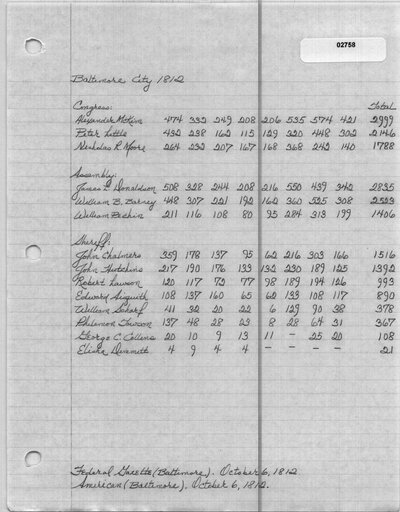 02758
Baltimore City 1812
Congress: Total
Alexander McKim 474 332 249 208 206 535 574 421 2999
Peter Little 432 238 162 115 129 320 448 302 2146
Nicholas R. Moore 264 232 207 167 168 368 242 140 1788
Assembly:
James L. Donaldson 508 328 244 208 216 550 439 342 2835
William B. Barney 448 307 221 192 162 360 525 308 2523
William Pechin 211 116 108 80 95 284 313 199 1406
Sheriff:
John Chalmers 359 178 137 95 62 216 303 166 1516
John Hutchins 217 190 176 133 132 230 189 125 1392
Robert Lawson 120 117 72 77 98 189 194 126 993
Edward Aisquith 108 137 160 65 62 133 108 117 890
William Scharf 41 32 20 22 6 129 90 38 378
Philemon Towson 137 48 28 23 8 28 64 31 367
George C. Collins 20 10 9 13 11 – 25 20 108
Elisha Demmitt 4 9 4 4 – – – – 21
Federal Gazette (Baltimore). October 6, 1812.
American (Baltimore), October 6, 1812.